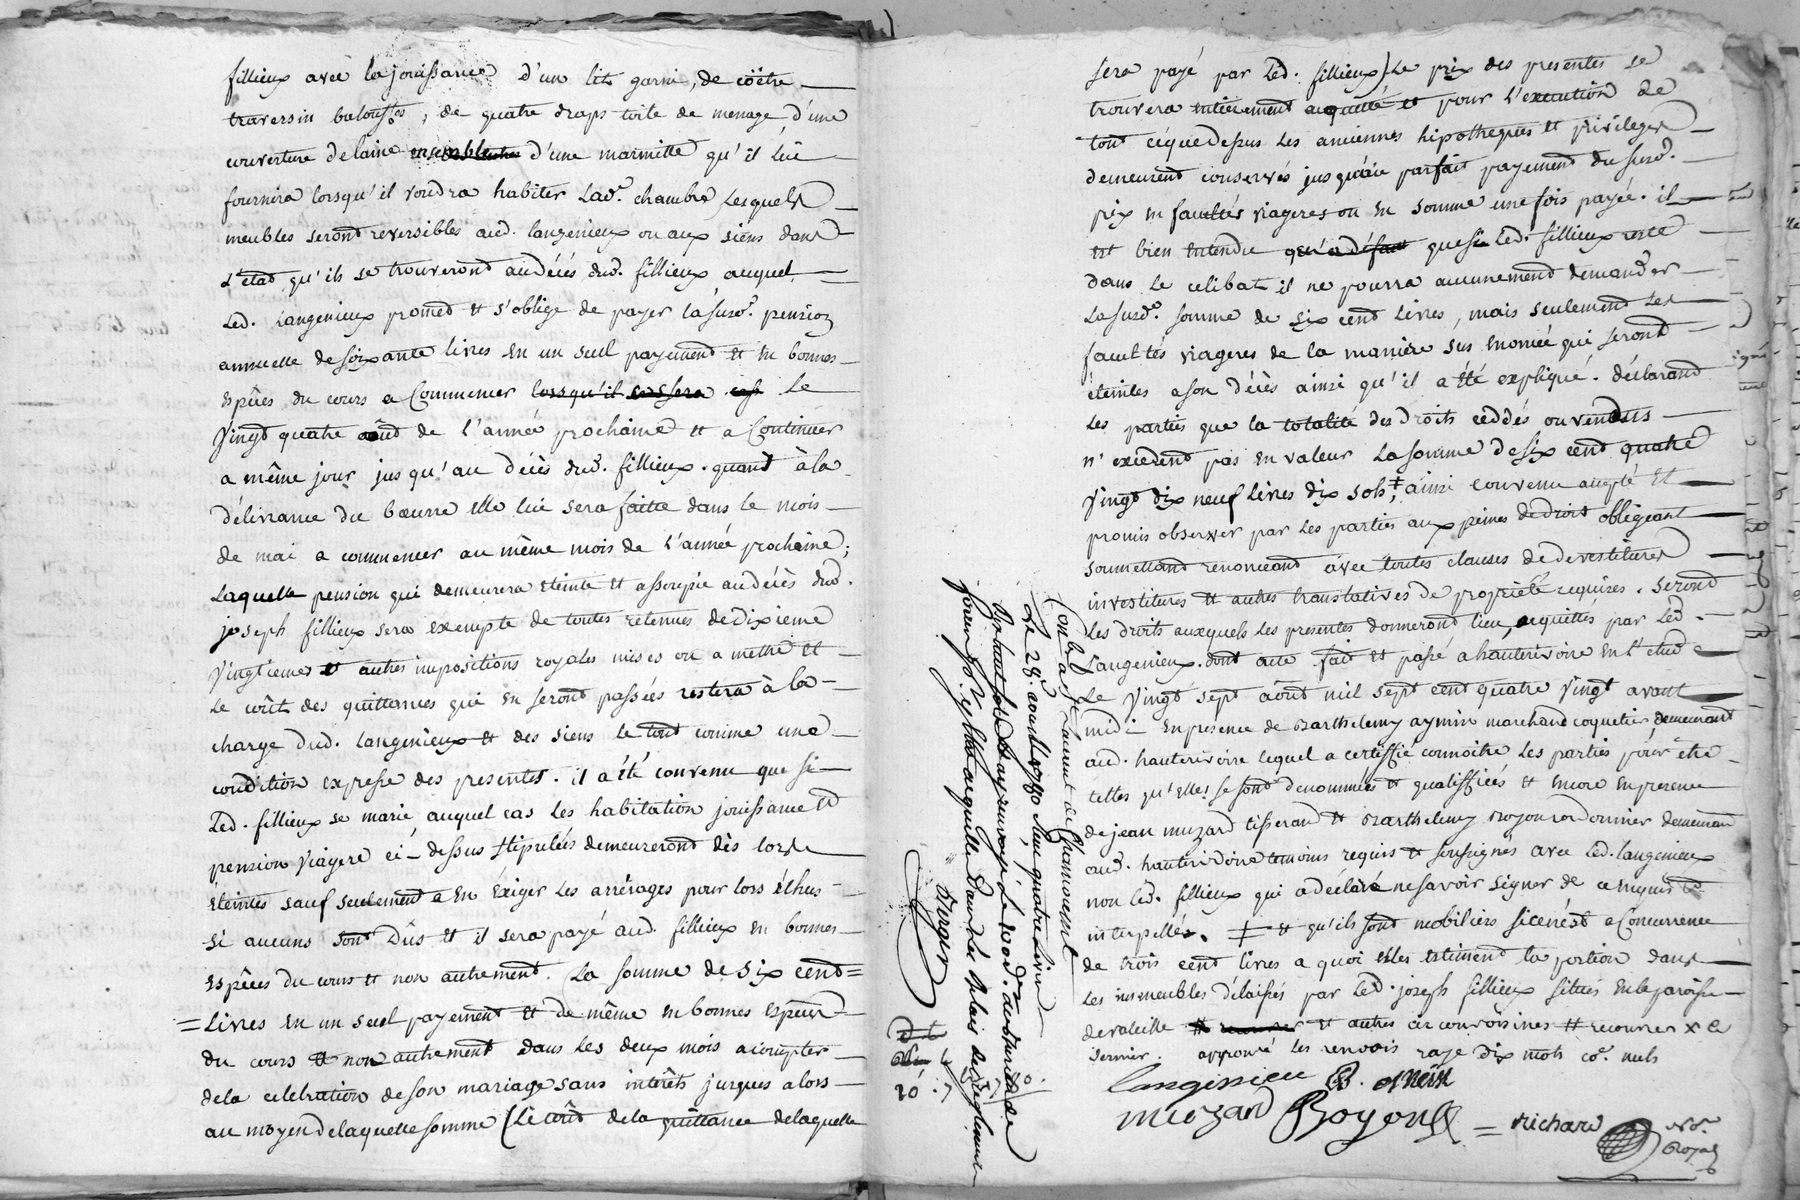 fillieux avec la jouissance d'un lit garni, de coëtre
traversin balouf.es, de quatre draps toile de menage, d'une
couverture de laine d'une marmitte qu'il lui
fournira lorsqu'il voudra habiter lad.e chambre Lesquels
meubles seront reversibles aud. langenieux ou aux siens dans
l'état qu'ils se trouveront au décés dud. fillieux auquel
Led. Langenieux promet et s'oblige de payer la susd.e pension
annuelle de soixante livres en un seul payement et en bonnes
espêces du cours a Commencer lorsqu'il Le
Vingt quatre aôut de l'année prochaine et a Continuer
a même jour jusqu'au décès dud. fillieux. quant à la
délivrance du bœurre elle lui sera faitte dans le mois
de mai a commencer au même mois de l'année prochaine;
Laquelle pension qui demeurera éteinte et assoupie au décès dud.
joseph fillieux sera exempte de toutes retenues de dixieme
Vingtiemes et autres impositions royales mises ou a mettre et
Le coût des quittances qui en seront passées restera à la
charge dud. langenieux et des siens le tout comme une
condition expresse des presentes. il a été convenu que si
Led. fillieux se marie auquel cas les habitation jouissance et
pension Viagere ci-dessus stipulées demeureront dès lors
éteintes sauf seulement a en éxiger les arrérages pour lors échus
si aucuns sont dûs et il sera payé aud. fillieux en bonnes
espêces du cours et non autrement. La somme de six cent
Livres en un seul payement et de même en bonnes espêces
du cours et non autrement dans les deux mois a compter
de la celebration de son mariage sans interêts jusques alors
au moyen de laquelle somme (Le coût de la quittance de laquelle
sera payé par Led. fillieux) Le prix des presentes se
trouvera entierement acquitté et pour l'execution de
tout ce que dessus les anciennes hipotheques et privileges
demeurent conservés jusqu'au parfait payement du susd.
prix en facultés viageres ou en somme une fois payée. il
est bien entendu qu'a défaut que si Led. fillieux reste
dans le celibat il ne pourra aucunement demander
La susd.e somme de six cent livres, mais seulement les
facultés viageres de la maniere sus enoncée qui seront
éteintes a son décès ainsi qu'il a été expliqué. déclarant
Les parties que la totalité des droits cèddés ou vendus
n'excedent pas en valeur la somme de six cent quatre
Vingt dix neuf livres dix sols, ‡ ainsi convenu accepté et
promis observer par les parties aux peines de droit obligeant
soumettant renonceant avec toutes clauses de devestitures
investitures et autres translatives de propriété requises. seront
Les droits auxquels les presentes donneront lieu, acquittés par Led.
Langenieux. dont acte fait et passé a hauterivoire en l'etude
Le Vingt sept aôut mil sept cent quatre Vingt avant
midi en presence de Barthelemy aymin marchand coquetier, demeurant
aud. hauterivoire lequel a certiffié connoitre les parties pour être
telles qu'elles se sont denommées et qualiffiées et encore en presence
de jean muzard tisserand et Barthelemy Royon cordonnier demeurant
aud. hauterivoire temoins requis et soussignés avec led. langenieux
non Led. fillieux qui a déclaré ne savoir signer de ce enquis et
interpellés. ‡ et qu'ils sont mobiliers si ce n'est a Concurrence
de trois cent livres a quoi elles estiment la portion dans
Les immeubles délaissés par Led. joseph fillieux situés en la paroisse
de valeille # et autres circonvoisines # recouvrer x le
dernier. approuvé les renvois rayé dix mots co.e nuls
langenieu B. omein
Muzard Royon = Richard No.re Royal
Con.lé à St Laurent de Chamousset
Le 28. aoust 1780 Reçu quatre livres
Verger
10 : 7